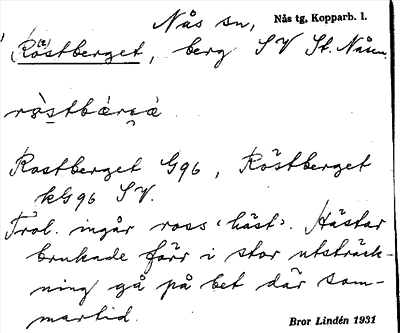 Nås sn, Nås tg, Kopparb. l.
Ro(å)stberget, berg SV St. Nåsen.
ròstbær̀ɡa
Rostberget G96, Röstberget
kG96 SV.
Trol. ingår ross 'häst'. Hästar
brukade förr i stor utsträck-
ning gå på bet där som-
martid.
Bror Lindén 1931